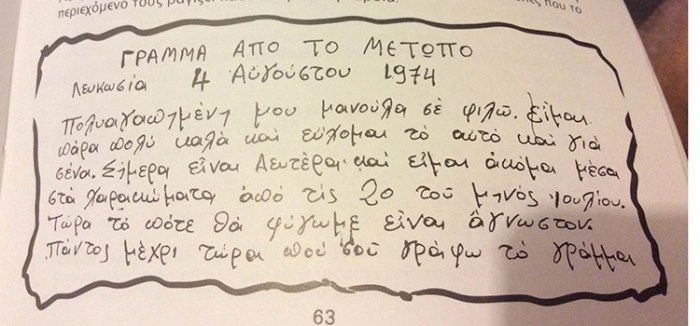 περιεχόμενο τους
που το
ΓΡΑΜΜΑ ΑΠΟ ΤΟ ΜΕΤΩΠΟ
Λευκωσία 4 Αὐγούστου 1974
Πολυαγαπημένη μου μανούλα σέ φιλῶ. Εἶμαι
πάρα πολύ καλά καί εὔχομαι τό αὐτό καί γιά
σένα. Σήμερα εἶναι Δευτέρα καί εἶμαι ἀκόμα μέσα
στά χαρακώματα ἀπό τίς 20 τοῦ μηνός Ἰουλίου.
Τώρα τό πότε θά φύγωμε εἶναι ἄγνωστον.
Πάντος μέχρι τώρα πού σοῦ γράφω τό γράμμα
63